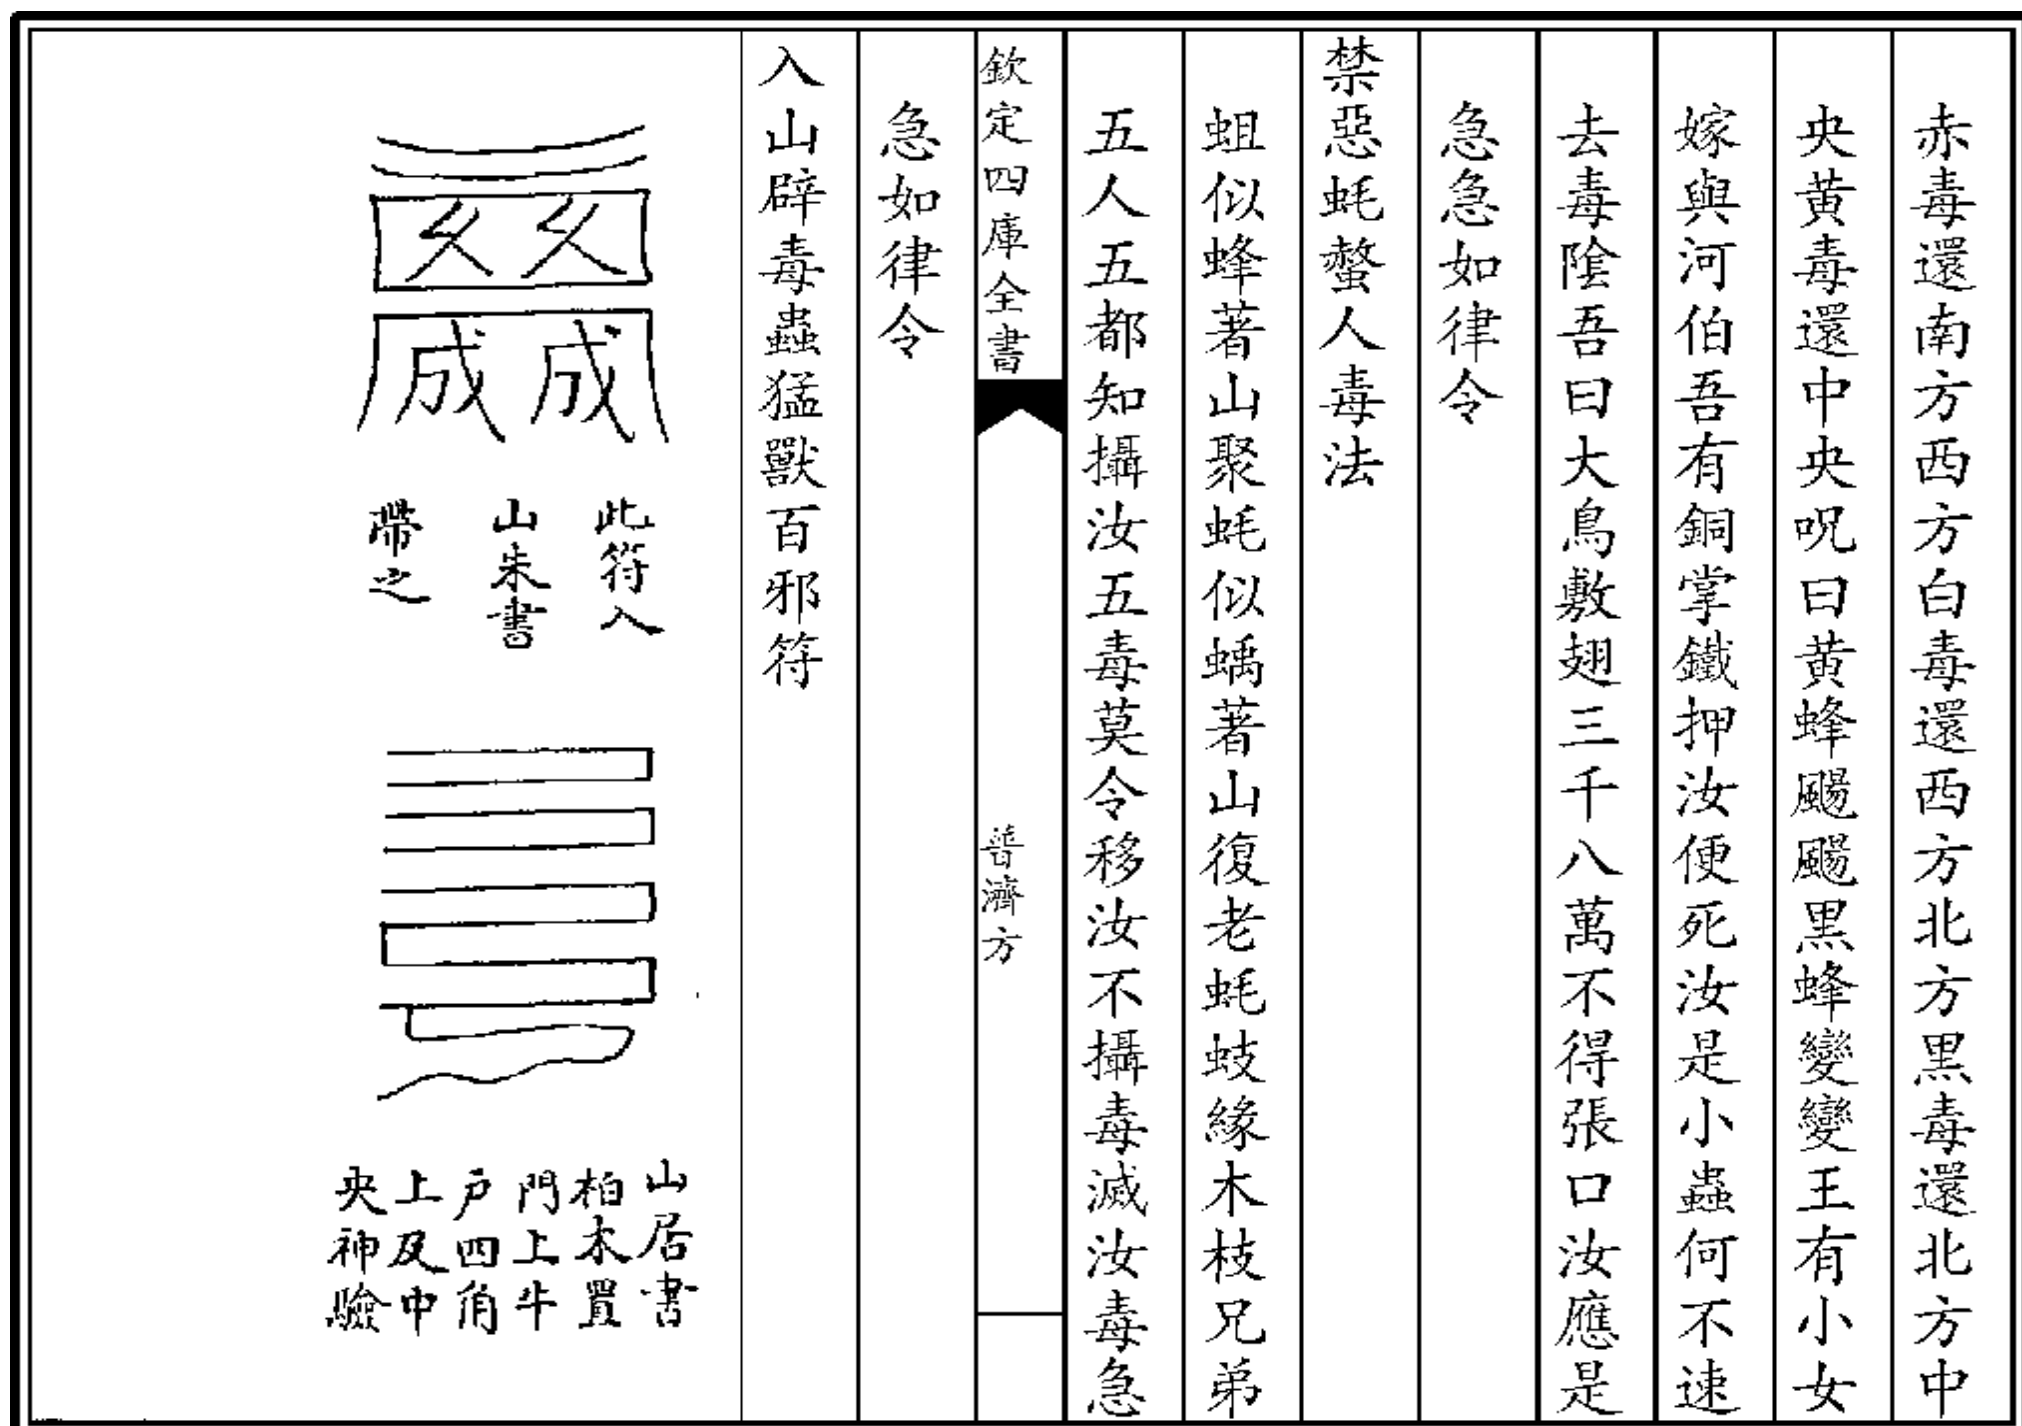 赤毒還南方西方白毒還西方北方黒毒還北方中
央黄毒還中央呪曰黄蜂颺颺黒蜂變變王有小女
嫁與河伯吾有銅掌鐵押汝便死汝是小蟲何不速
去毒陰吾曰大鳥敷翅三千八萬不得張口汝應是
急急如律令
禁惡蚝螫人毒法
蛆似蜂著山聚蚝似蝺著山復老蚝蛓緣木枝兄弟
五人五都知攝汝五毒莫令移汝不攝毒滅汝毒急
欽定四庫全書
普濟方
急如律令
入山辟毒蟲猛獸百邪符
此符入
山朱書
帶之
山居書
柏木置
門上牛
户四角
上及中
央神驗